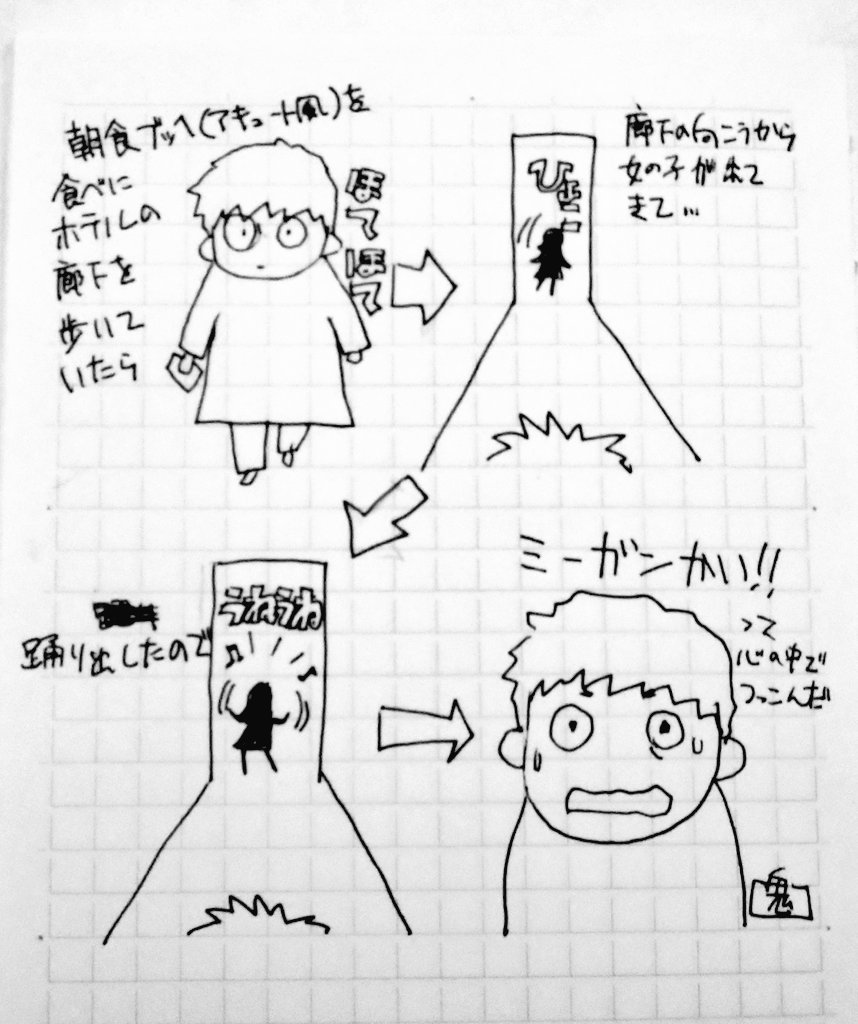 朝食ブッヘ(アキュート風)を
食べに
ホテルの
廊下を
歩いて
いたら
ほてほて
廊下の向こうから
女の子が出て
きて…
ひょこ
踊り出したので
うねうね
ミーガンかい!!
って
心の中で
つっこんだ
鬼